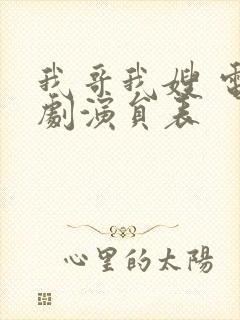 我哥我嫂 電
劇演員表
心里的太陽